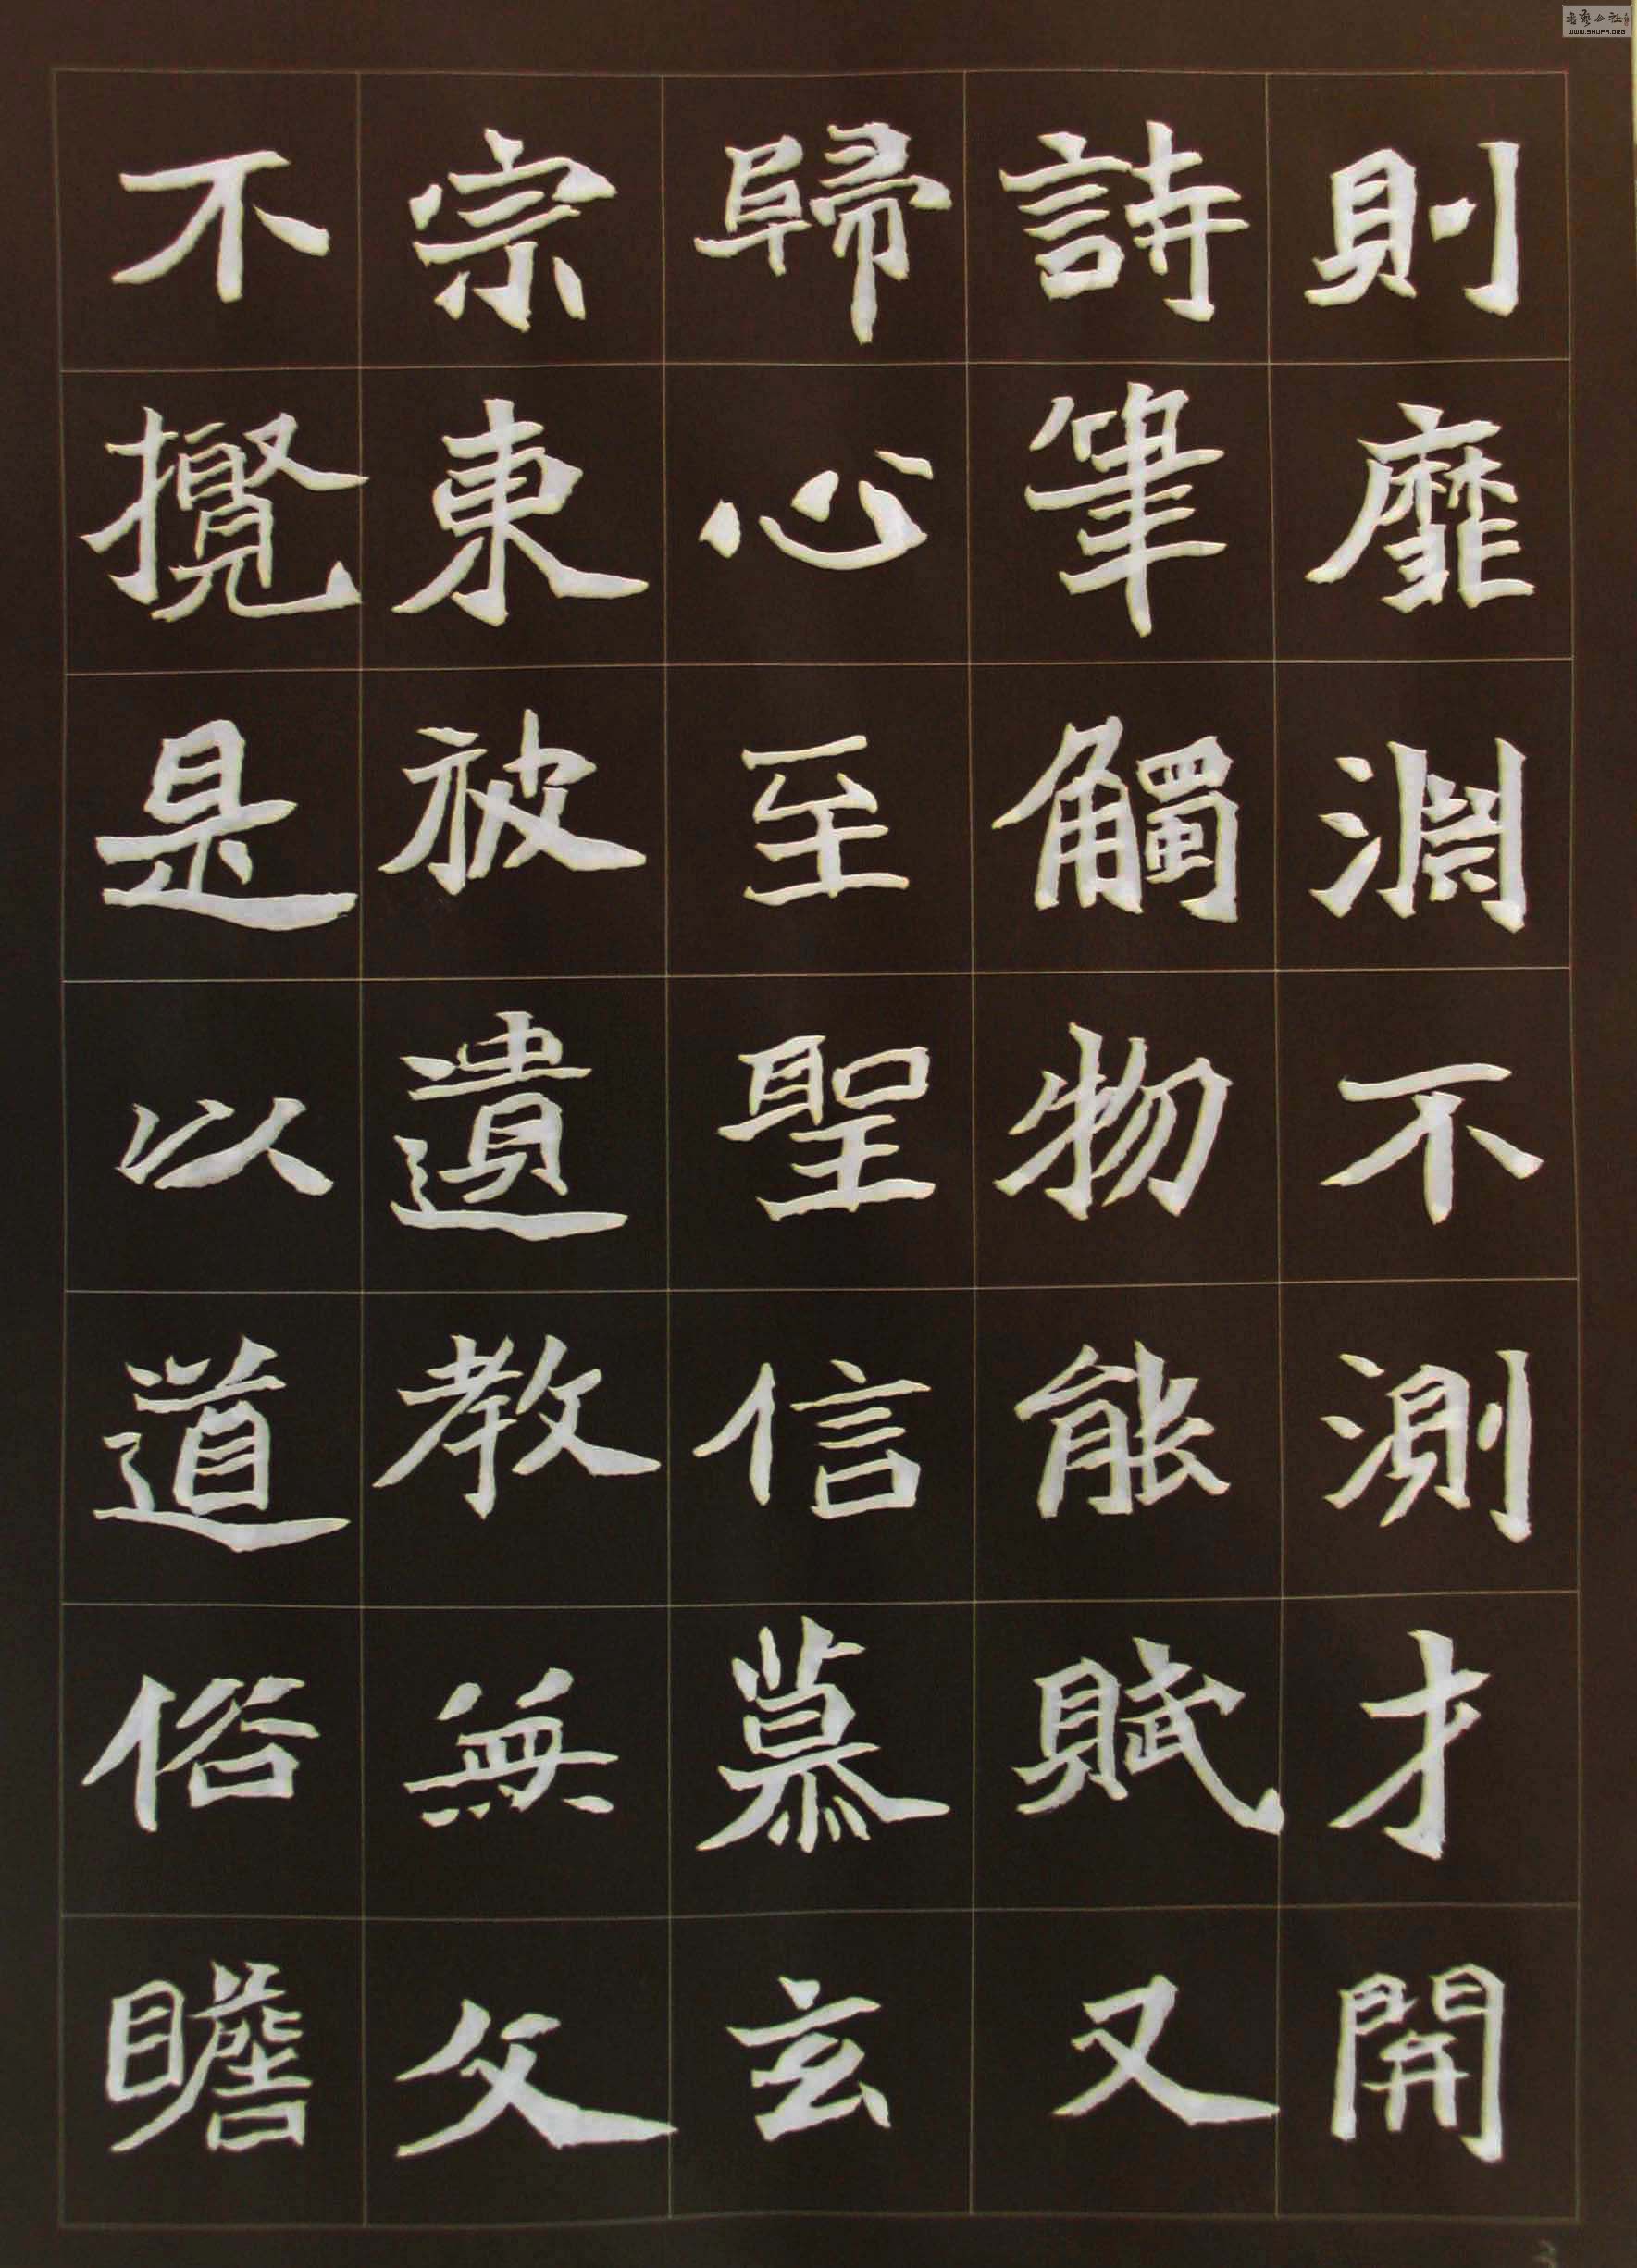 則靡淵不測才開
詩筆觸物能賦又
歸心至聖信慕玄
宗東被遺教無文
不攬是以道俗瞻
书艺公社
WWW.SHUFA.ORG